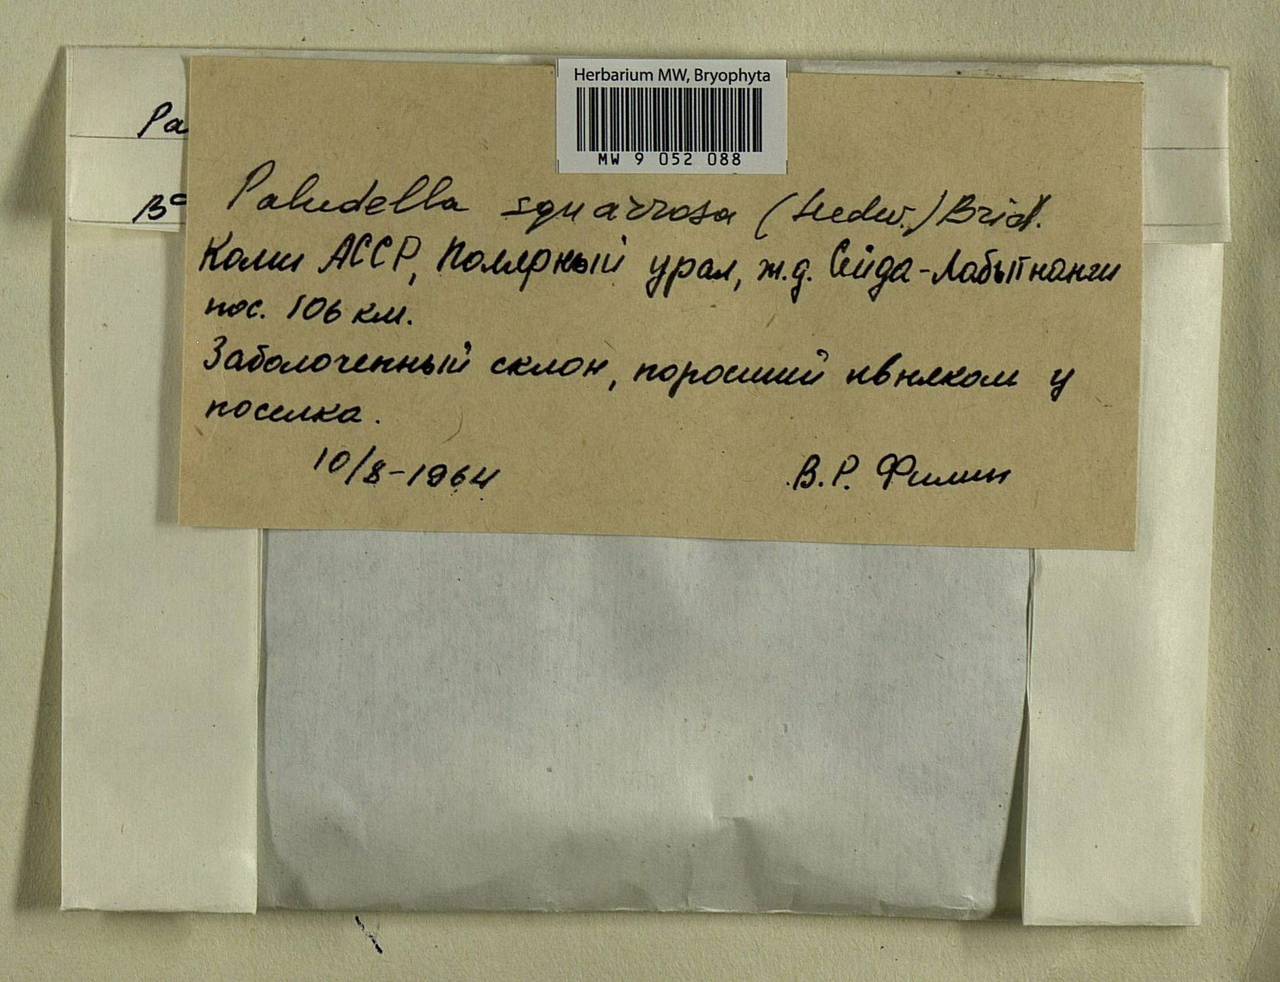 Herbarium MW, Bryophyta
MW 9 052 088
Pa
Paludella squarrosa (Hedw.) Brid.
Коми АССР, Полярный урал, ж.д. Сейда-Лабытнанги
пос. 106 км.
Заболоченный склон, поросший ивняком у
поселка.
10/8-1964 В.Р. Филин